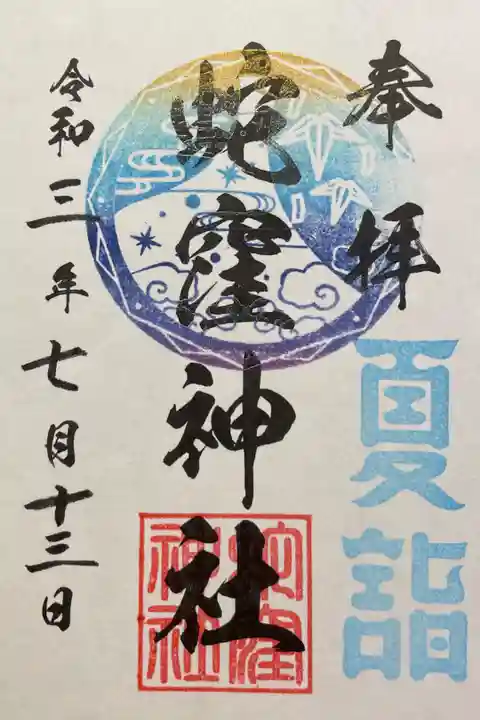 奉拝
夏詣
蛇窪神社
蛇窪
神社
令和三年七月十三日